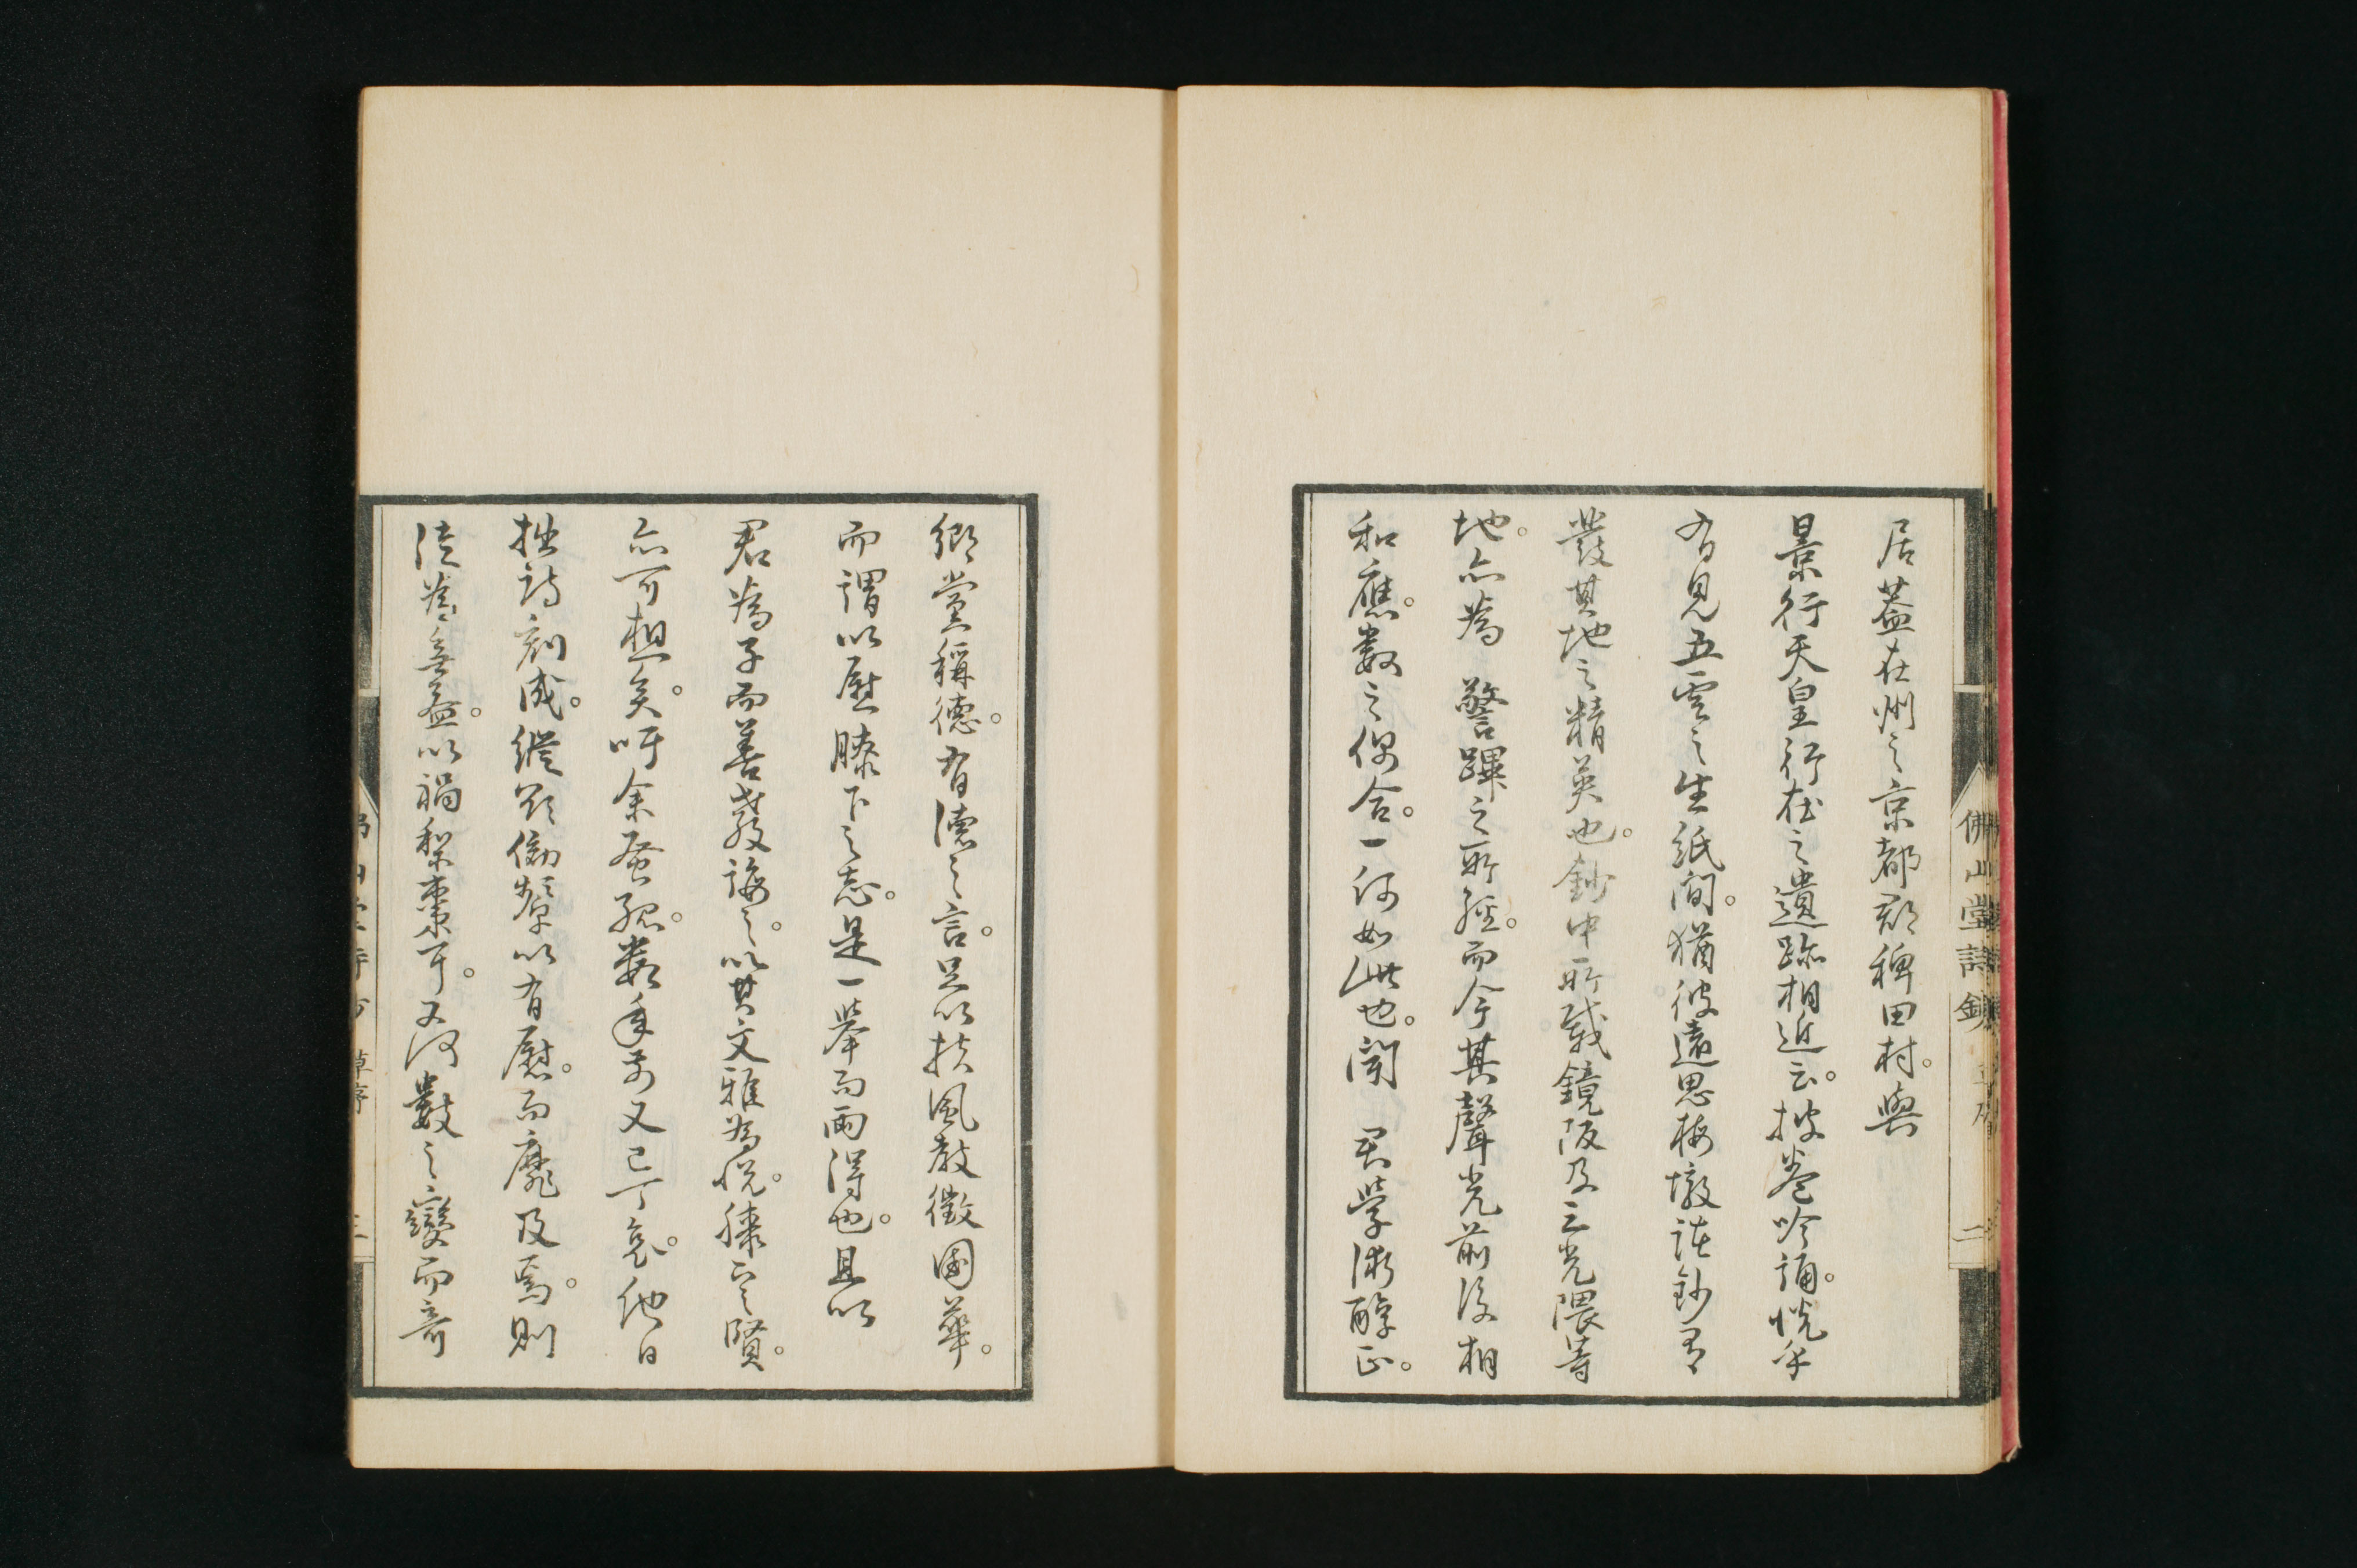 居蓋在州之京都郡稗田村。與
景行天皇行在之遺跡相近云。披卷吟誦。恍乎
有見五雲之生紙間。猶彼遠思樓集鈔有
發其地之精英也。鈔中所載鏡阪及三光隈等
地。亦為 警蹕之所經。而今其聲光前後相
和應。數之偶合。一何如此也。聞 君學術醇正。
佛山堂詩鈔 草序 二
鄉黨稱德。有德之言。足以扶風教徵國華。
而謂以慰膝下之志。是一舉而兩得也。且以
君為子而善教誨之。以其文雅為悅。膝下之賢。
亦可想矣。吁余蚤孤。數年前又已丁哀。他日
拙詩刻成。縱欲傚顰以有慰。而靡及焉。則
徒為無益。以禍梨棗耳。又何數之變而奇
草序 三